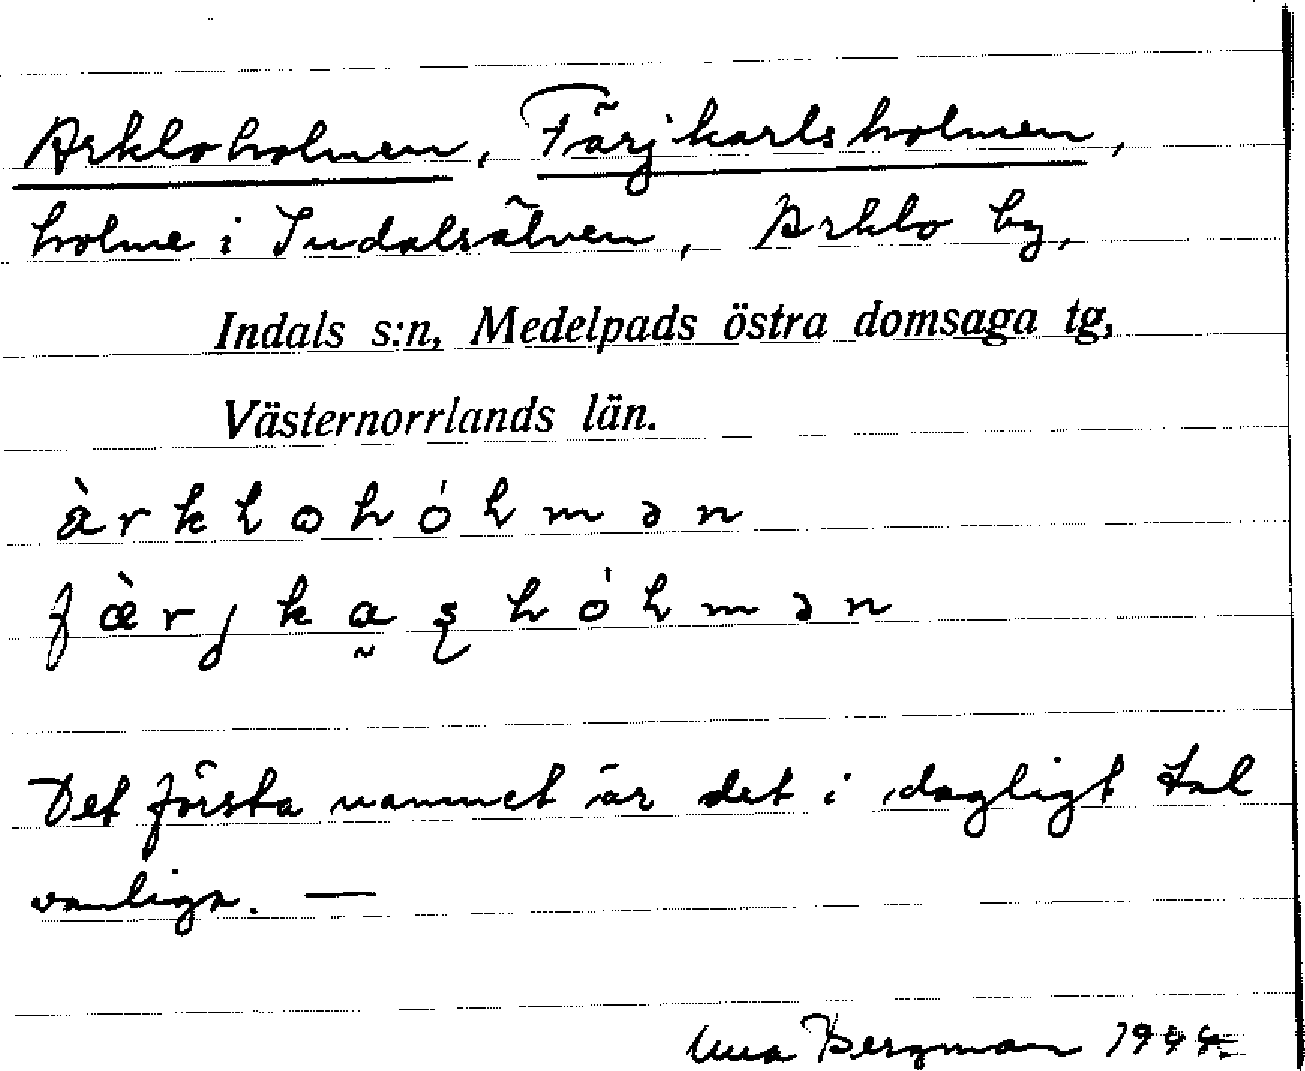 Arkloholmen, Färjkarlsholmen,
holme i Indalsälven, Arklo by,
Indals s:n, Medelpads östra domsaga tg,
Västernorrlands län.
àrkłohóɫmən
fæ̀rjka̰ʂhóɫmən
Det första namnet är det i dagligt tal
vanliga. —
Una Bergman 1944.